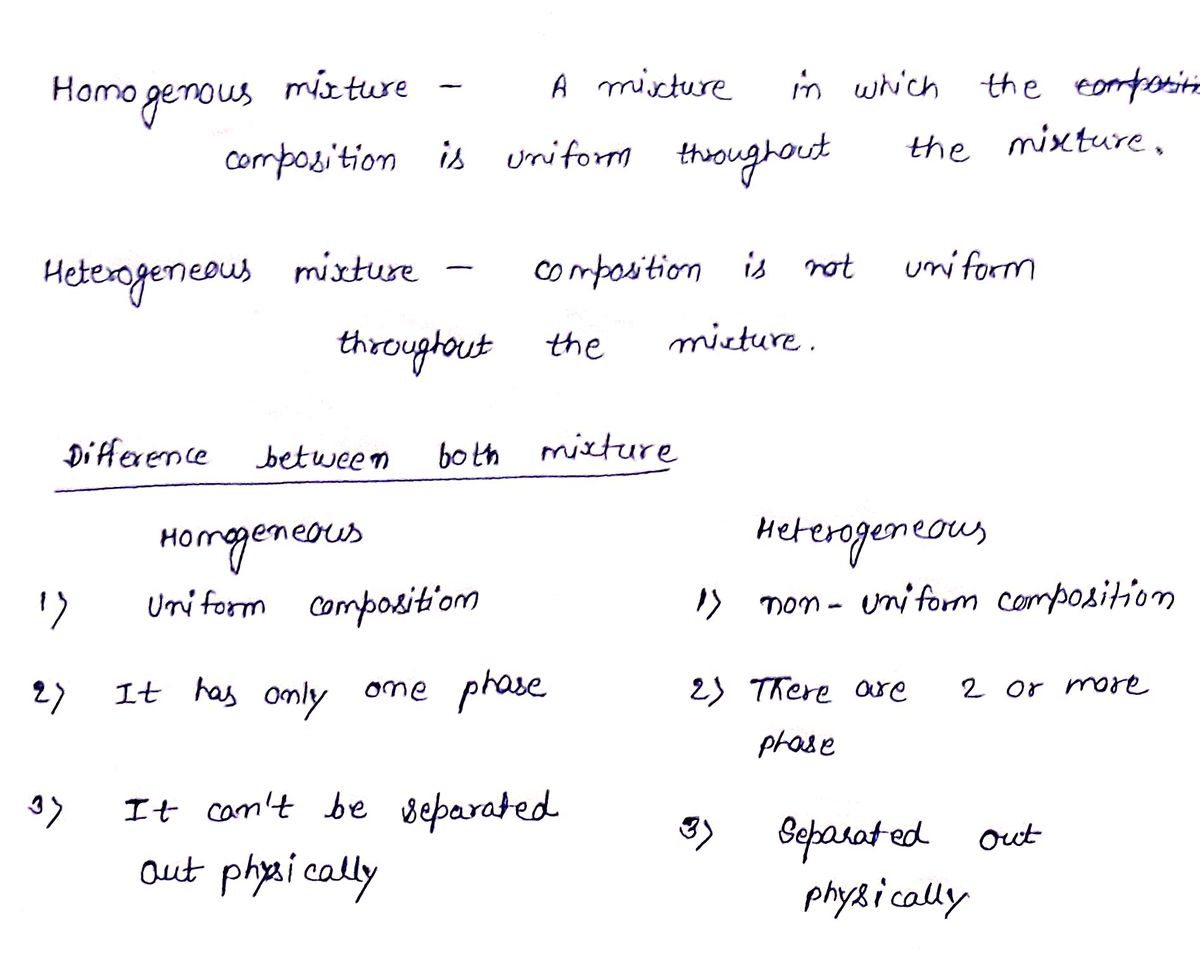 Homogenous mixture - A mixture in which the
composition is uniform throughout the mixture.
Heterogeneous mixture - composition is not uniform
throughout the mixture.
Difference between both mixture
Homogeneous Heterogeneous
1) Uniform composition 1) non-uniform composition
2) It has only one phase 2) There are 2 or more
phase
3) It can't be separated 3) Separated out
out physically physically